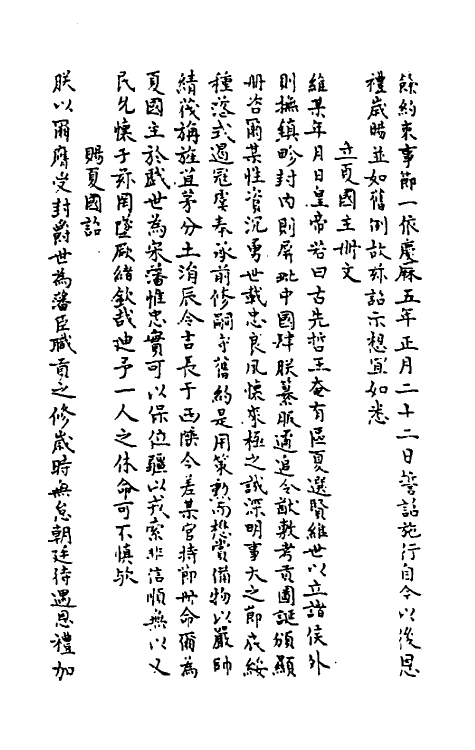 餘約束事節一依慶厤五年正月二十二日誓詔施行自今以後恩
禮歲賜並如舊例故玆詔示想宜知悉
立夏國主册文
維某年月日皇帝若曰古先哲王奄有區夏選賢維世以立諸侯外
則撫鎮畛封内則屏毗中國肆朕纂服遹追令猷敷考貢圖誕頒顯
册咨爾某性資沉勇世載忠良夙懷來極之誠深明事大之節底綏
種落式遏寇虐奉承前修嗣守舊約是用策勲而懋賞備物以嚴帥
績茷旃旌苴茅分土涓辰令吉長于西陲今差某官持節册命爾為
夏國主於戲世為宋藩惟忠實可以保位疆以戎索非信順無以乂
民允懷于玆罔墜厥緒欽哉迪予一人之休命可不慎歟
賜夏國詔
朕以爾膺受封爵世為藩臣職貢之修歲時無怠朝廷待遇恩禮加